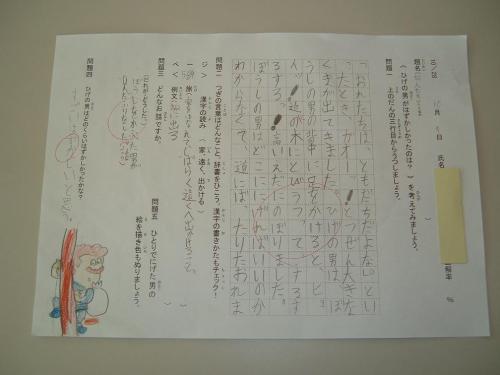 題名
月 日 氏名
（ひげの男がはずかしかったのは？）を考えてみましょう。
問題一 上のだんの三行目からうつしましょう。
「おれたちは、ともだちだよな。」とい
ったとき、「ガオー！」と、とつぜん大きな
くまが出てきました。ひげの男は、ぼ
うしの男の背中に足をかけると、ピョ
ン、と近の木にとびうつって、スルス
ルスル。高いえだにのぼりました。
ぼうしの男はどこににげればいいのか
わからなくて、道にばたりたおれま
問題二 つぎの言葉はどんなこと。辞書をひこう。漢字の書きかたもチェック！
漢字の読み（家、遠く、出かける）
旅（家をはなれて、しばらく遠くへ出かけること。）
例文（旅に出る）
問題三 どんなお話ですか。
（だれがどうした）
問題四 ひげの男はどのくらいはずかしかったかな？
問題五 ひとりでにげた男の
絵を描き色もぬりましょう。